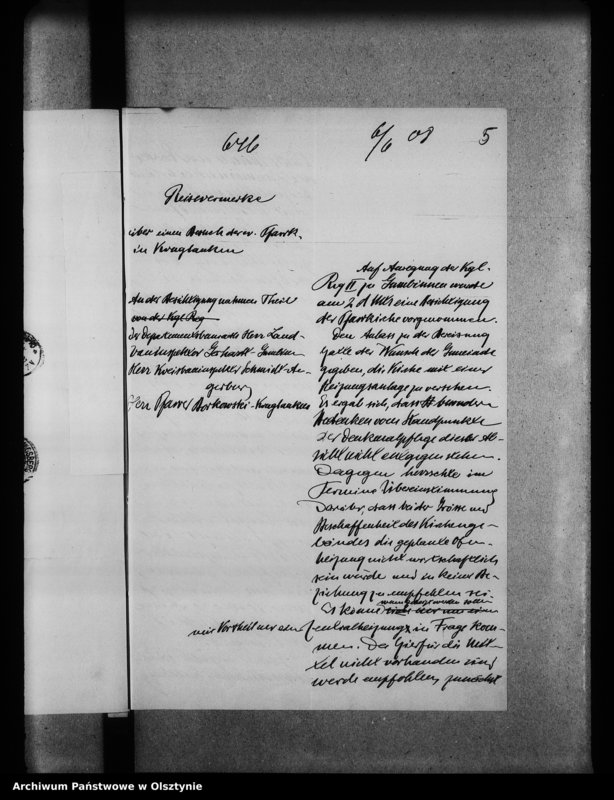 646
6/6 08
5
Reisevermerke
über einen Besuch der ev. Pfarrk.
in Kruglanken
An der Besichtigung nahmen Theil
von der Kgl. Reg
der Departementsbaurath Herr Land-
bauinspektor Gerhardt-Gumbinnen
Herr Kreisbauinspektor Schmidt-An-
gerburg
Herr Pfarrer Borkowski-Kruglanken
Auf Anregung der Kgl.
Reg II zu Gumbinnen wurde
am 2 d Mts eine Besichtigung
der Pfarrkirche vorgenommen.
Den Anlass zu der Bereisung
hatte der Wunsch der Gemeinde
gegeben, die Kirche mit einer
Heizungsanlage zu versehen.
Es ergab sich, dass besondere
Bedenken vom Standpunkte
der Denkmalpflege dieser Ab-
sicht nicht entgegenstehen.
Dagegen herrschte im
Termine Übereinstimmung
darüber, dass bei der Grösse und
Beschaffenheit des Kirchenge-
bäudes die geplante Ofen-
heizung nicht wirtschaftlich
sein würde und in keiner Be-
ziehung zu empfehlen sei.
Es könne
mit Vortheil nur eine
Centralheizung in Frage kom-
men. Da hierfür die Mit-
tel nicht vorhanden sind
werde empfohlen, zunächst
Archiwum Państwowe w Olsztynie